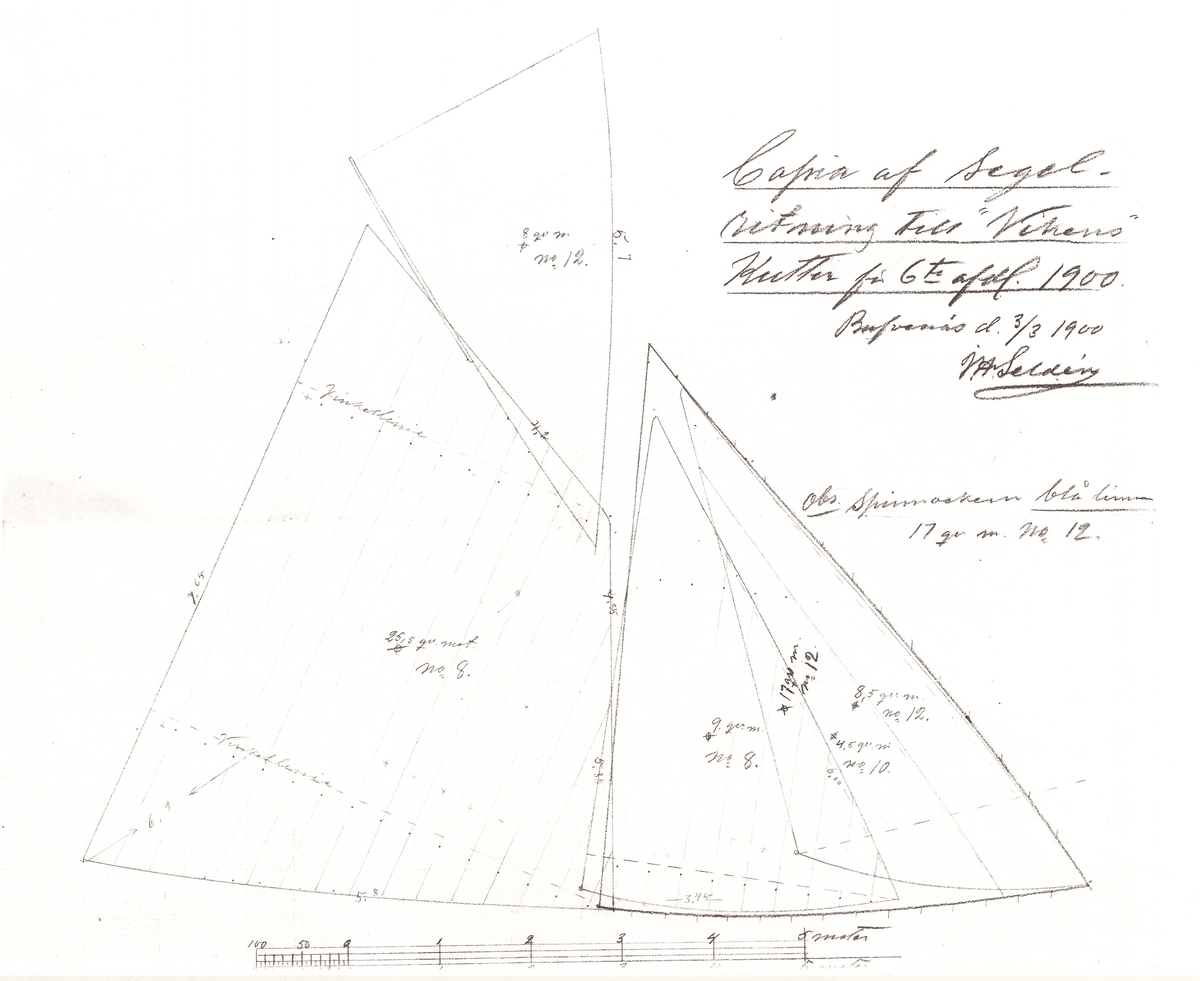 Copia af Segel-
ritning till "Vikens"
Kutter för 6te afdl. 1900.
d. 3/3 1900
JHSeldén
8 qv m.
No 12.
6,7
Vinkellinie
4,2
obs. Spinnackern blå linien
17 qv m. No 12.
7,65
25,5 qv. met.
No 8.
17 qv m.
No 12.
8,5 qv. m.
No 12.
9. qv. m.
No 8.
4,5 qv m
No 10.
Vinkellinie
6,9
5,8
3,45
100 50 0 1 2 3 4 5 meter